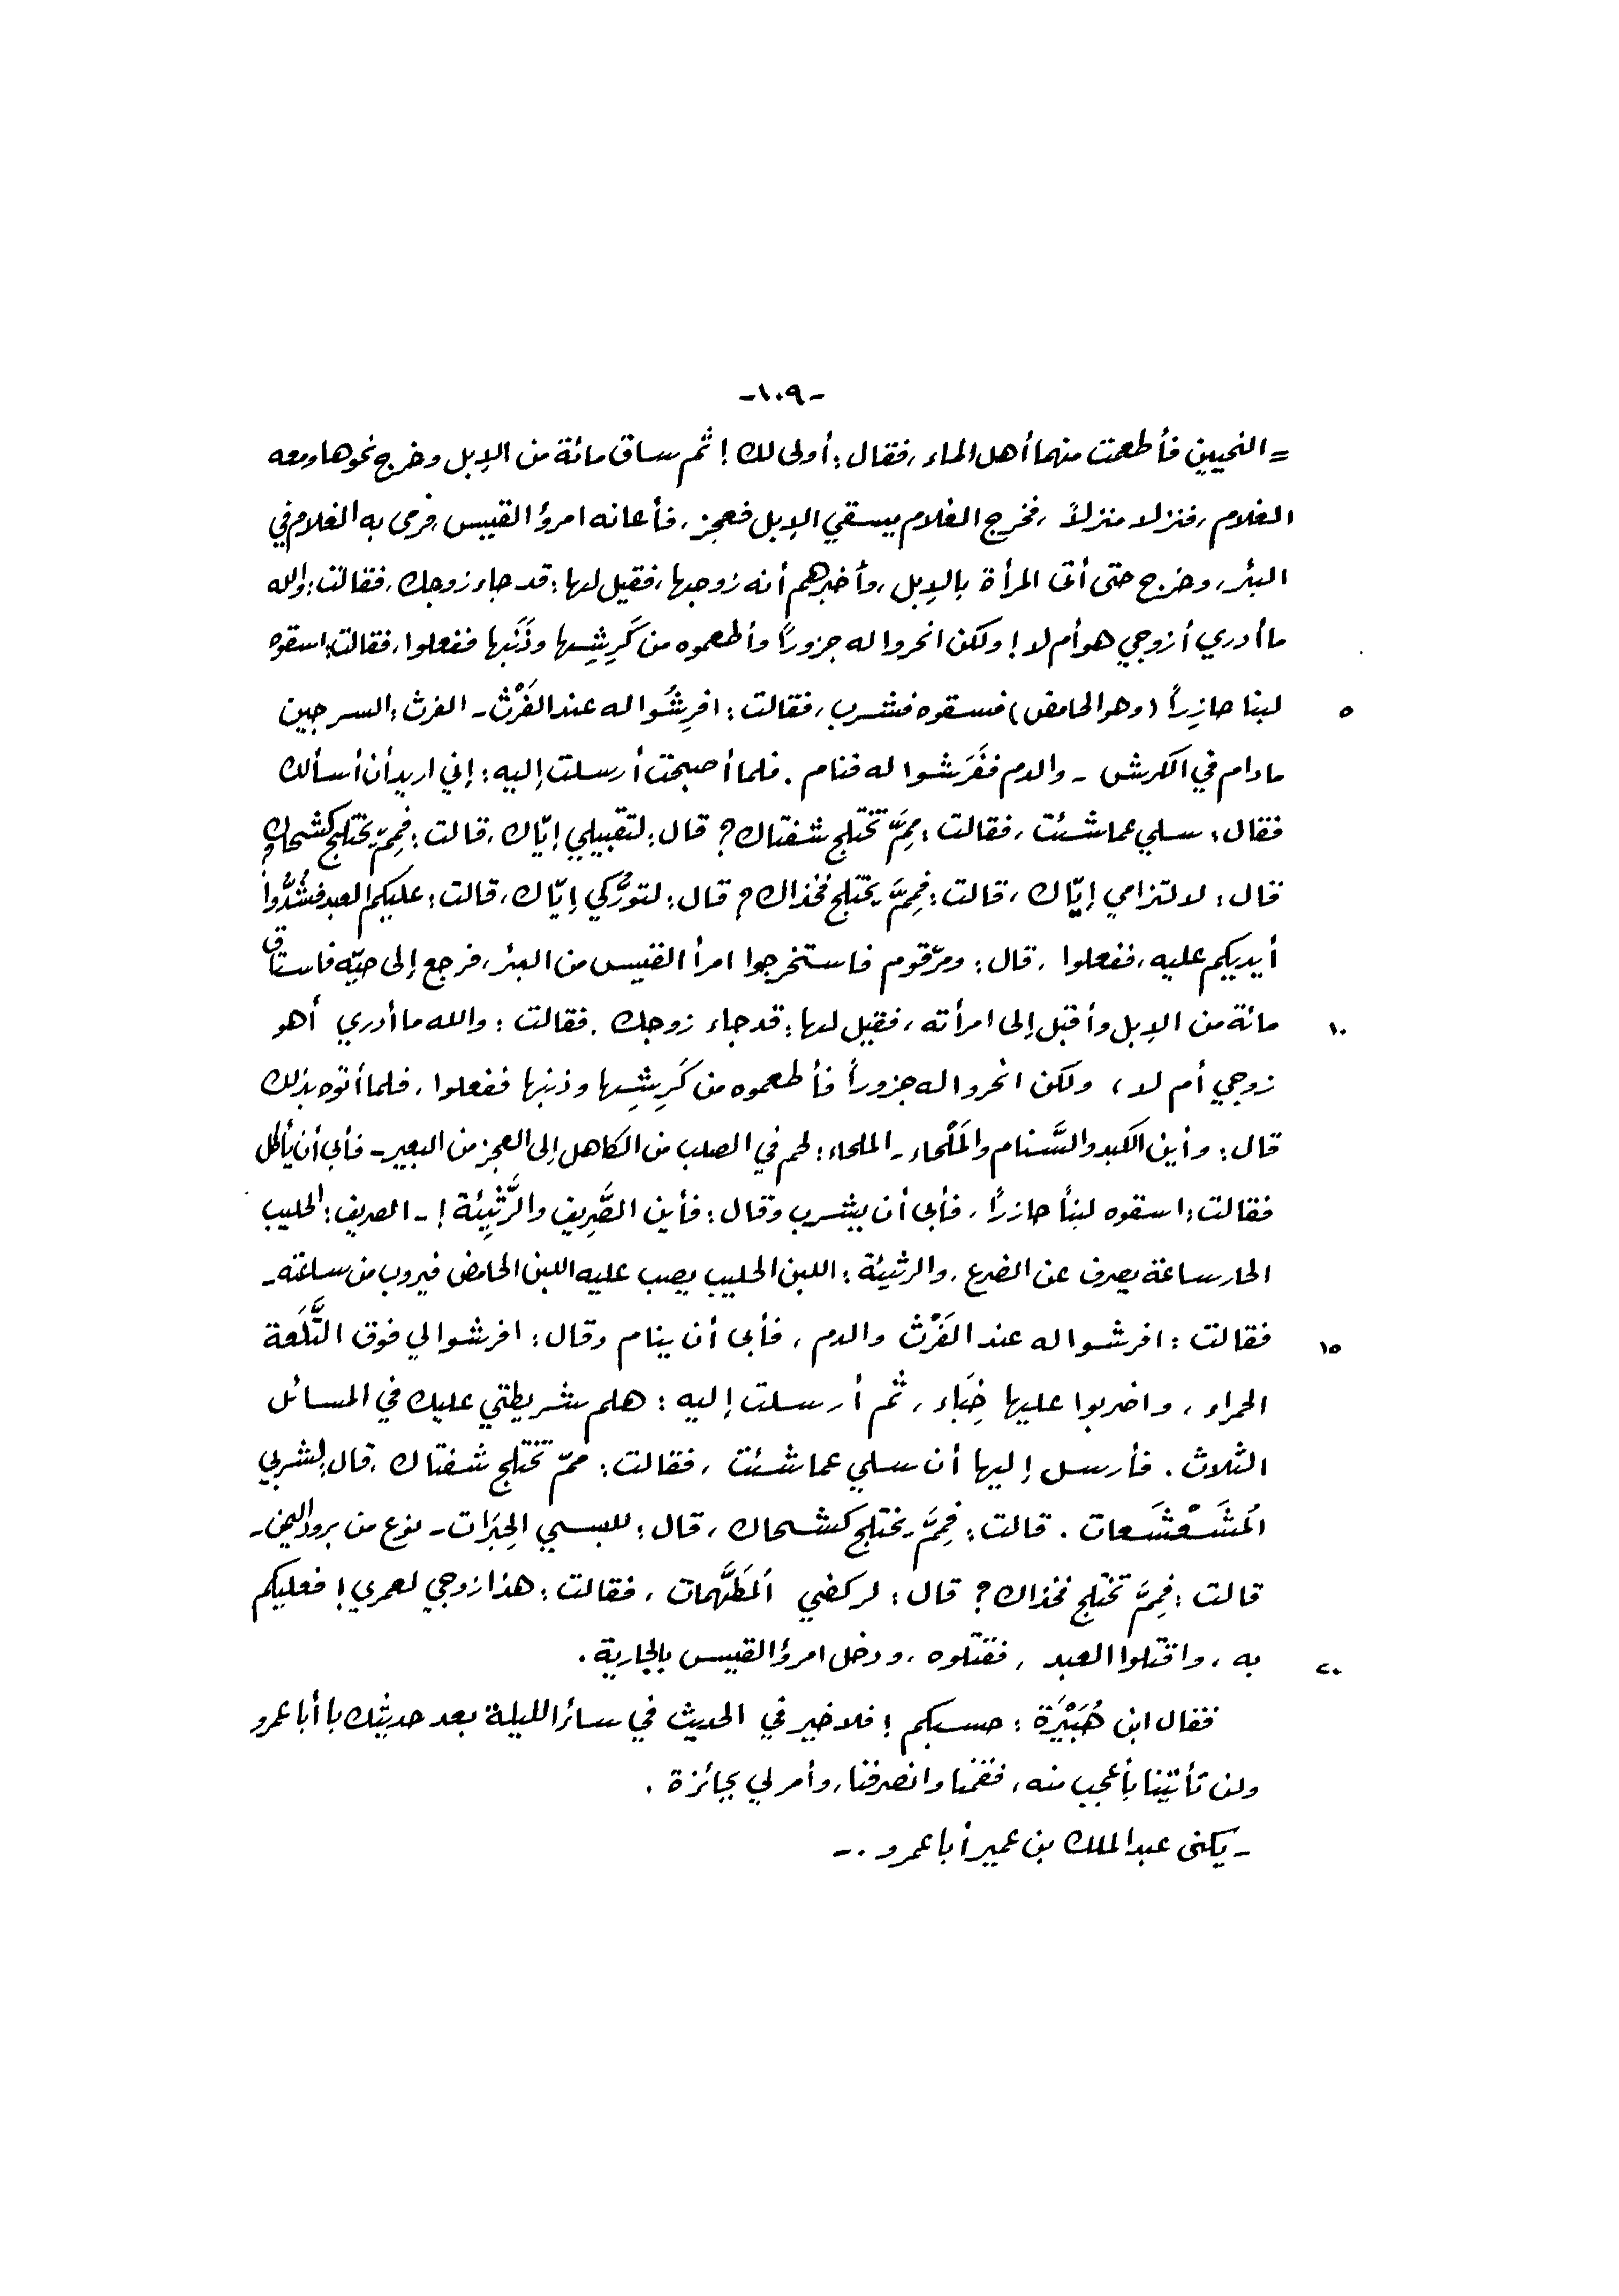 -١٠٩-
= النحيين فأطعمت منهما أهل الماء، فقال: أولى لك! ثم ساق مائة من الإبل وخرج نحوها ومعه
الغلام، فنزلا منزلاً، فخرج الغلام يسقي الإبل فعجز، فأعانه امرؤ القيس، فرمى به الغلام في
البئر، وخرج حتى أتى المرأة بالإبل، وأخبرهم أنه زوجها، فقيل لها: قد جاء زوجك، فقالت: والله
ما أدري أزوجي هو أم لا! ولكن انحروا له جزوراً وأطعموه من كَرِشِها وذَنَبها ففعلوا، فقالت: اسقوه
٥ لبنا حازِراً (وهو الحامض) فسقوه فشرب، فقالت: افرِشُوا له عند الفَرْث - الفرث: السرجين
مادام في الكرش - والدم ففَرَشوا له فنام. فلما أصبحت أرسلت إليه: إني اريد أن أسألك
فقال: سلي عما شئت، فقالت: مِمَّ تختلج شفتاك؟ قال: لتقبيلي إيّاك، قالت: فمِمّ يختلج كشحاك؟
قال: لالتزامي إيّاك، قالت: فمِمَّ يختلج فخذاك؟ قال: لتورُّكي إيّاك، قالت: عليكم العبد فشُدُّوا
أيديكم عليه، ففعلوا، قال: ومرّ قوم فاستخرجوا امرأ القيس من البئر، فرجع إلى حيّه فاستاق
١٠ مائة من الإبل وأقبل إلى امرأته، فقيل لها: قد جاء زوجك. فقالت: والله ما أدري أهو
زوجي أم لا، ولكن انحروا له جزوراً فأطعموه من كَرِشِها وذنبها ففعلوا، فلما أتوه بذلك
قال: وأين الكبد والسَّنام والمَلْحاء - الملحاء: لحم في الصلب من الكاهل إلى العجز من البعير - فأبى أن يأكل
فقالت: اسقوه لبناً حازراً، فأبى أن يشرب وقال: فأين الصَّرِيف والرَّثِيئة! - الصريف: الحليب
الحار ساعة يصرف عن الضرع، والرثيئة: اللبن الحليب يصب عليه اللبن الحامض فيروب من ساعته -
١٥ فقالت: افرشوا له عند الفَرْث والدم، فأبى أن ينام وقال: افرشوا لي فوق التَّلَعة
الحمراء، واضربوا عليها خِبَاء، ثم أرسلت إليه: هلم شريطتي عليك في المسائل
الثلاث. فأرسل إليها أن سلي عما شئت، فقالت: ممّ تختلج شفتاك، قال: لشربي
المُشَعْشَعات. قالت: فمِمَّ يختلج كشحاك، قال: للبسي الحِبَرَات - نوع من برود اليمن -
قالت: فمِمَّ تختلج فخذاك؟ قال: لركضي المُطَهَّمات، فقالت: هذا زوجي لعمري! فعليكم
٢٠ به، واقتلوا العبد، فقتلوه، ودخل امرؤ القيس بالجارية.
فقال ابن هُبَيْرَة: حسبكم! فلا خير في الحديث في سائر الليلة بعد حديثك يا أبا عمرو
ولن تأتينا بأعجب منه، فقمنا وانصرفنا، وأمر لي بجائزة.
- يكنى عبد الملك بن عمير أبا عمرو. -